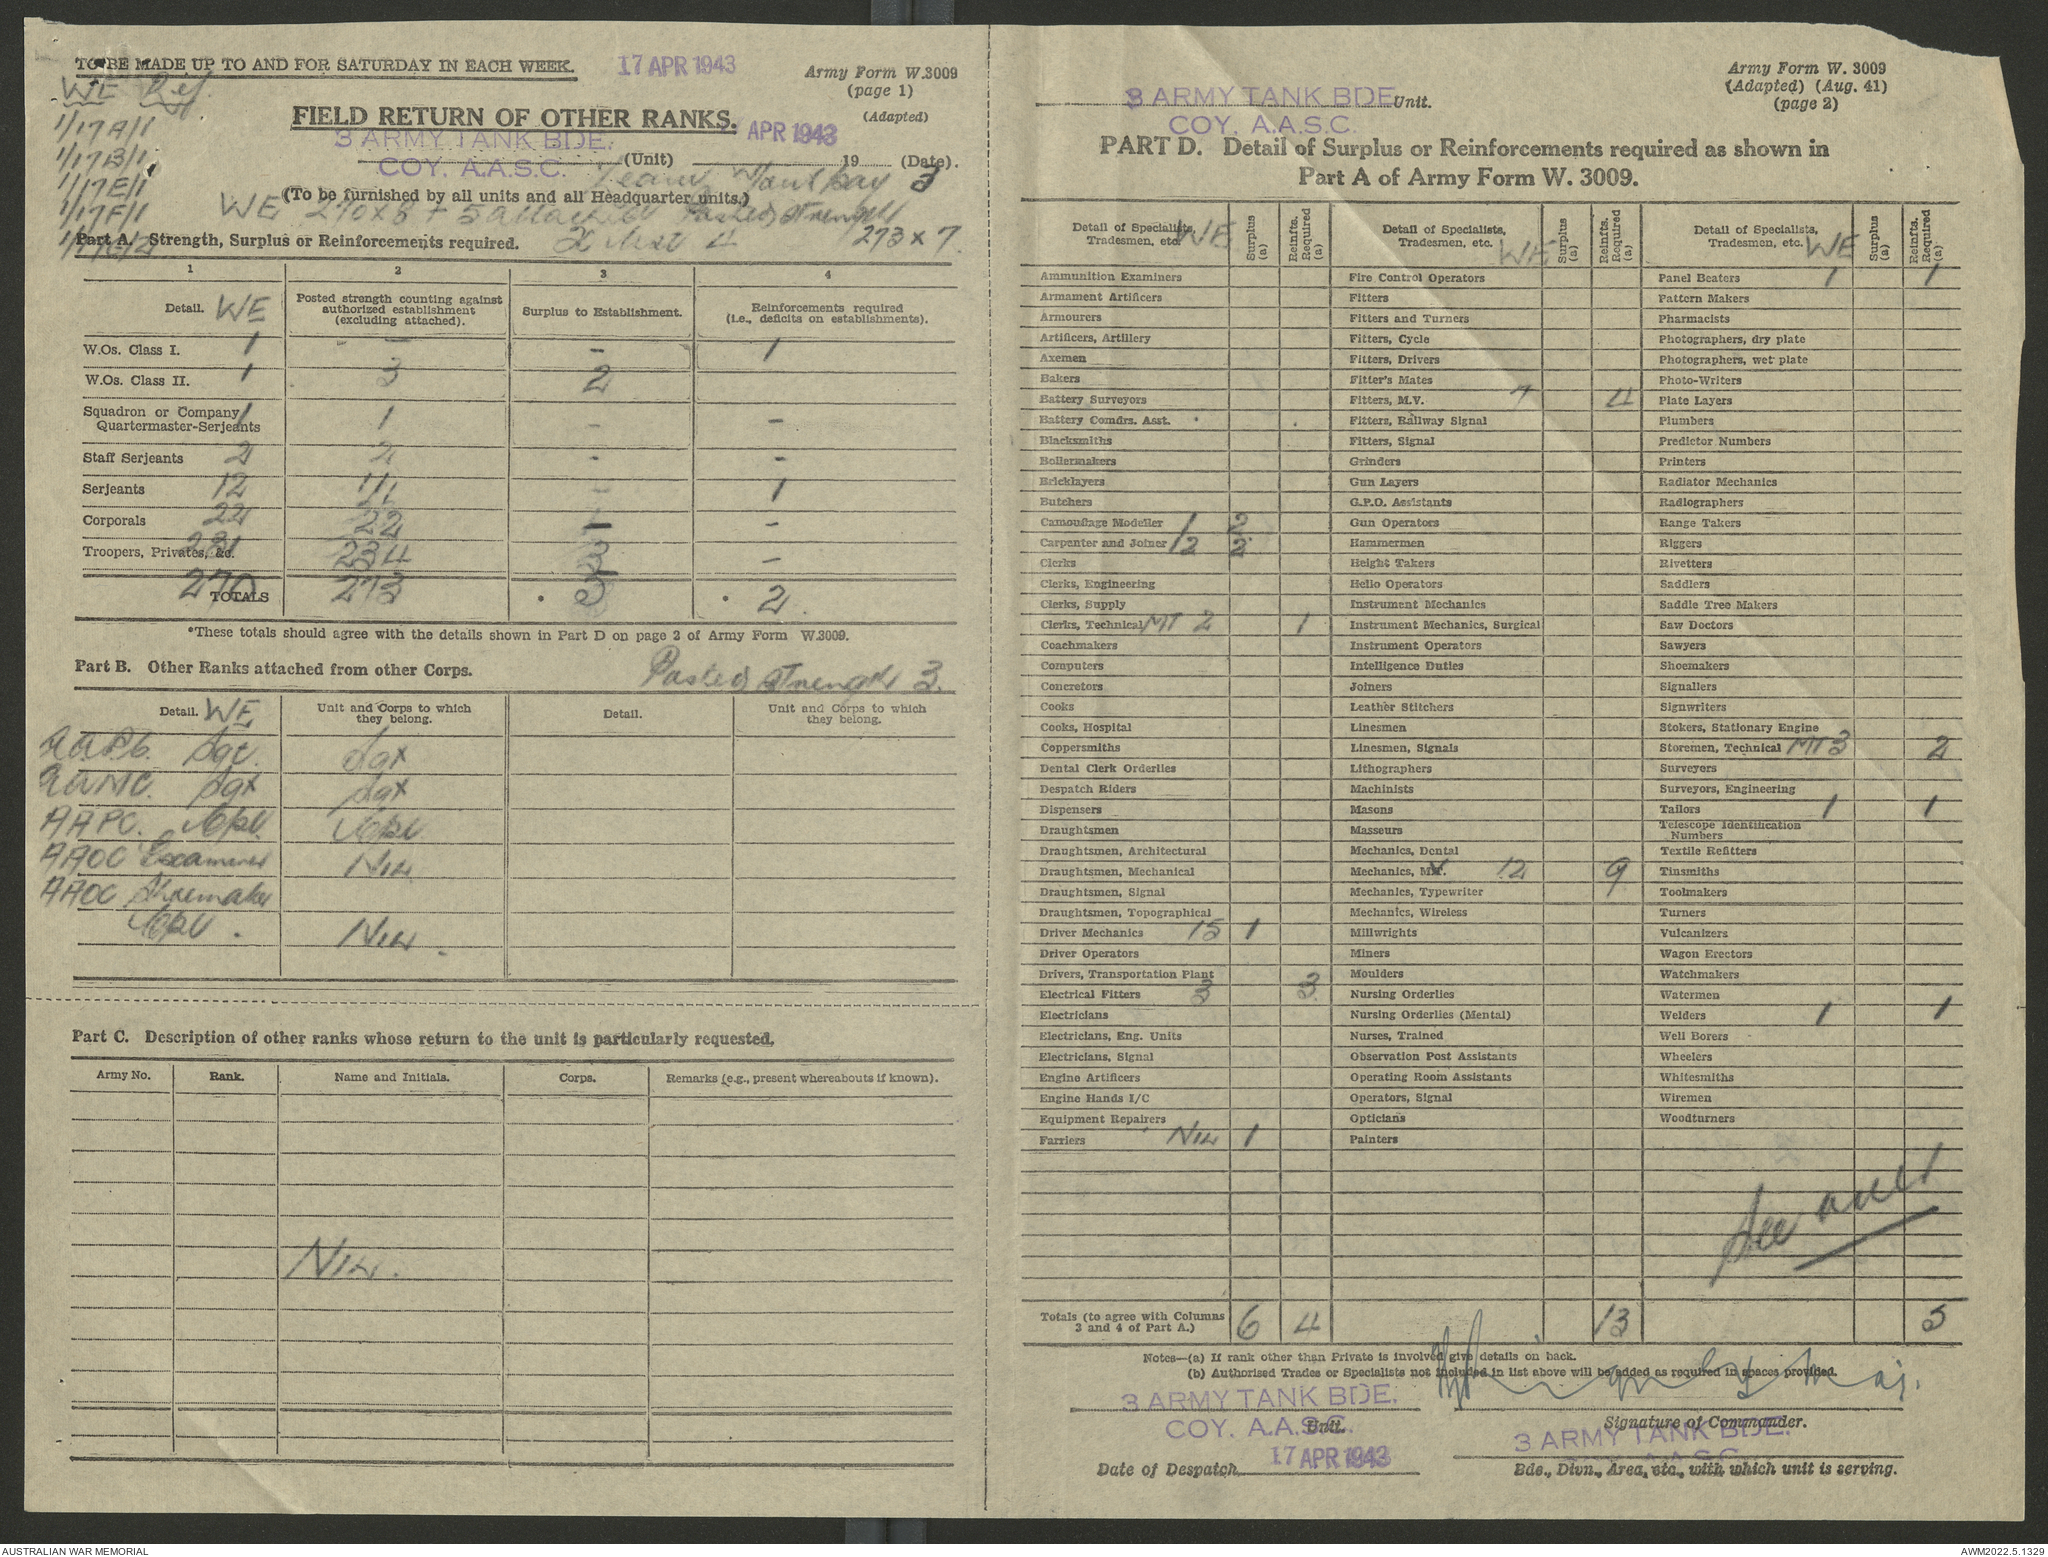 TO BE MADE UP TO AND FOR SATURDAY IN EACH WEEK.
17 APR 1943
Army Form W.3009
(page 1)
(Adapted)
WE Ref.
1/17A/1
1/17B/1
1/17E/1
1/17F/1
FIELD RETURN OF OTHER RANKS.
3 ARMY TANK BDE.
COY. A.A.S.C.
(Unit)
APR 1943
19 (Date).
(To be furnished by all units and all Headquarter units.)
WE 270 x 5 + 5 attached Posted strength
273 x 7
Part A. Strength, Surplus or Reinforcements required.
1 2 3 4
Detail. WE
Posted strength counting against authorized establishment (excluding attached).
Surplus to Establishment.
Reinforcements required (i.e., deficits on establishments).
W.Os. Class I. 1 - - 1
W.Os. Class II. 1 3 2
Squadron or Company Quartermaster-Serjeants 1 1 - -
Staff Serjeants 2 2 - -
Serjeants 12 11 - 1
Corporals 22 22 -
Troopers, Privates, &c. 231 234 3 -
TOTALS 270 273 3 2
*These totals should agree with the details shown in Part D on page 2 of Army Form W.3009.
Part B. Other Ranks attached from other Corps.
Posted strength 3.
Detail. WE
Unit and Corps to which they belong.
Detail.
Unit and Corps to which they belong.
Sgt. Sgt
Sgt Sgt
AAPC. Cpl. Cpl.
AAOC Examiner Nil
AAOC Shoemaker
Cpl. Nil.
Part C. Description of other ranks whose return to the unit is particularly requested.
Army No. Rank. Name and Initials. Corps. Remarks (e.g., present whereabouts if known).
Nil.
3 ARMY TANK BDE Unit.
COY. A.A.S.C.
Army Form W. 3009
(Adapted) (Aug. 41)
(page 2)
PART D. Detail of Surplus or Reinforcements required as shown in
Part A of Army Form W. 3009.
Detail of Specialists, Tradesmen, etc. WE
Surplus (a)
Reinfts. Required (a)
Ammunition Examiners
Armament Artificers
Armourers
Artificers, Artillery
Axemen
Bakers
Battery Surveyors
Battery Comdrs. Asst.
Blacksmiths
Boilermakers
Bricklayers
Butchers
Camouflage Modeller 1 2
Carpenter and Joiner 2 2
Clerks
Clerks, Engineering
Clerks, Supply
Clerks, Technical MT 2 1
Coachmakers
Computers
Concretors
Cooks
Cooks, Hospital
Coppersmiths
Dental Clerk Orderlies
Despatch Riders
Dispensers
Draughtsmen
Draughtsmen, Architectural
Draughtsmen, Mechanical
Draughtsmen, Signal
Draughtsmen, Topographical
Driver Mechanics 15 1
Driver Operators
Drivers, Transportation Plant
Electrical Fitters 3 3
Electricians
Electricians, Eng. Units
Electricians, Signal
Engine Artificers
Engine Hands I/C
Equipment Repairers
Farriers Nil 1
Detail of Specialists, Tradesmen, etc. WE
Surplus (a)
Reinfts. Required (a)
Fire Control Operators
Fitters
Fitters and Turners
Fitters, Cycle
Fitters, Drivers
Fitter's Mates
Fitters, M.V. 7 4
Fitters, Railway Signal
Fitters, Signal
Grinders
Gun Layers
G.P.O. Assistants
Gun Operators
Hammermen
Height Takers
Helio Operators
Instrument Mechanics
Instrument Mechanics, Surgical
Instrument Operators
Intelligence Duties
Joiners
Leather Stitchers
Linesmen
Linesmen, Signals
Lithographers
Machinists
Masons
Masseurs
Mechanics, Dental
Mechanics, MV. 12 9
Mechanics, Typewriter
Mechanics, Wireless
Millwrights
Miners
Moulders
Nursing Orderlies
Nursing Orderlies (Mental)
Nurses, Trained
Observation Post Assistants
Operating Room Assistants
Operators, Signal
Opticians
Painters
Detail of Specialists, Tradesmen, etc. WE
Surplus (a)
Reinfts. Required (a)
Panel Beaters 1 1
Pattern Makers
Pharmacists
Photographers, dry plate
Photographers, wet plate
Photo-Writers
Plate Layers
Plumbers
Predictor Numbers
Printers
Radiator Mechanics
Radiographers
Range Takers
Riggers
Rivetters
Saddlers
Saddle Tree Makers
Saw Doctors
Sawyers
Shoemakers
Signallers
Signwriters
Stokers, Stationary Engine
Storemen, Technical MT 3 2
Surveyors
Surveyors, Engineering
Tailors 1 1
Telescope Identification Numbers
Textile Refitters
Tinsmiths
Toolmakers
Turners
Vulcanizers
Wagon Erectors
Watchmakers
Watermen
Welders 1 1
Well Borers
Wheelers
Whitesmiths
Wiremen
Woodturners
See over
Totals (to agree with Columns 3 and 4 of Part A.) 6 4 13 5
Notes—(a) If rank other than Private is involved give details on back.
(b) Authorised Trades or Specialists not included in list above will be added as required in spaces provided.
3 ARMY TANK BDE.
COY. A.A.S.C.
Unit.
Maj.
Signature of Commander.
17 APR 1943
Date of Despatch
3 ARMY TANK BDE.
A.A.S.C.
Bde., Divn., Area, etc., with which unit is serving.
AUSTRALIAN WAR MEMORIAL
AWM2022.5.1329